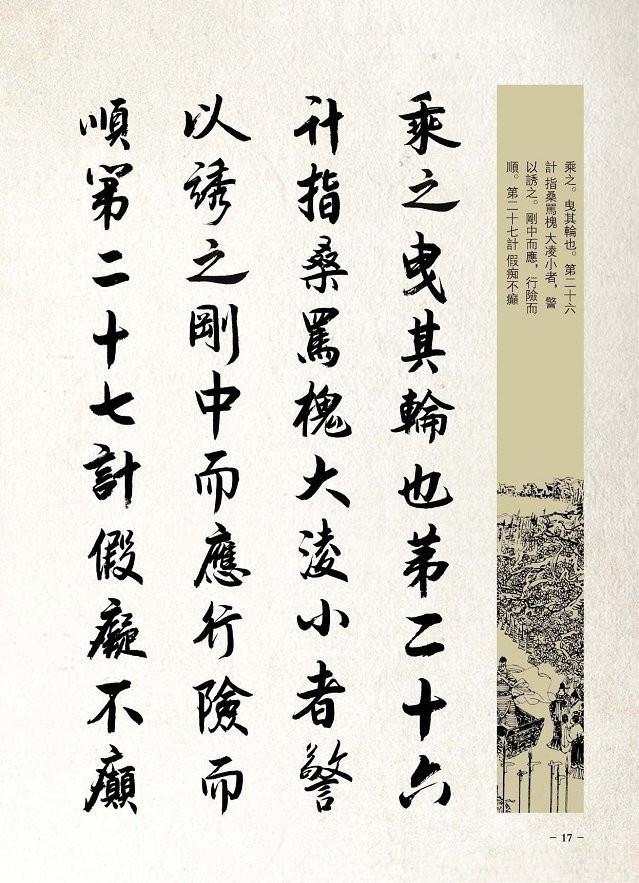 乘之曳其輪也第二十六
计指桑罵槐大淩小者警
以誘之剛中而應行險而
順第二十七計假癡不癲
乘之。曳其輪也。第二十六
計 指桑罵槐 大凌小者，警
以誘之。剛中而應，行險而
順。第二十七計 假痴不癲
– 17 –